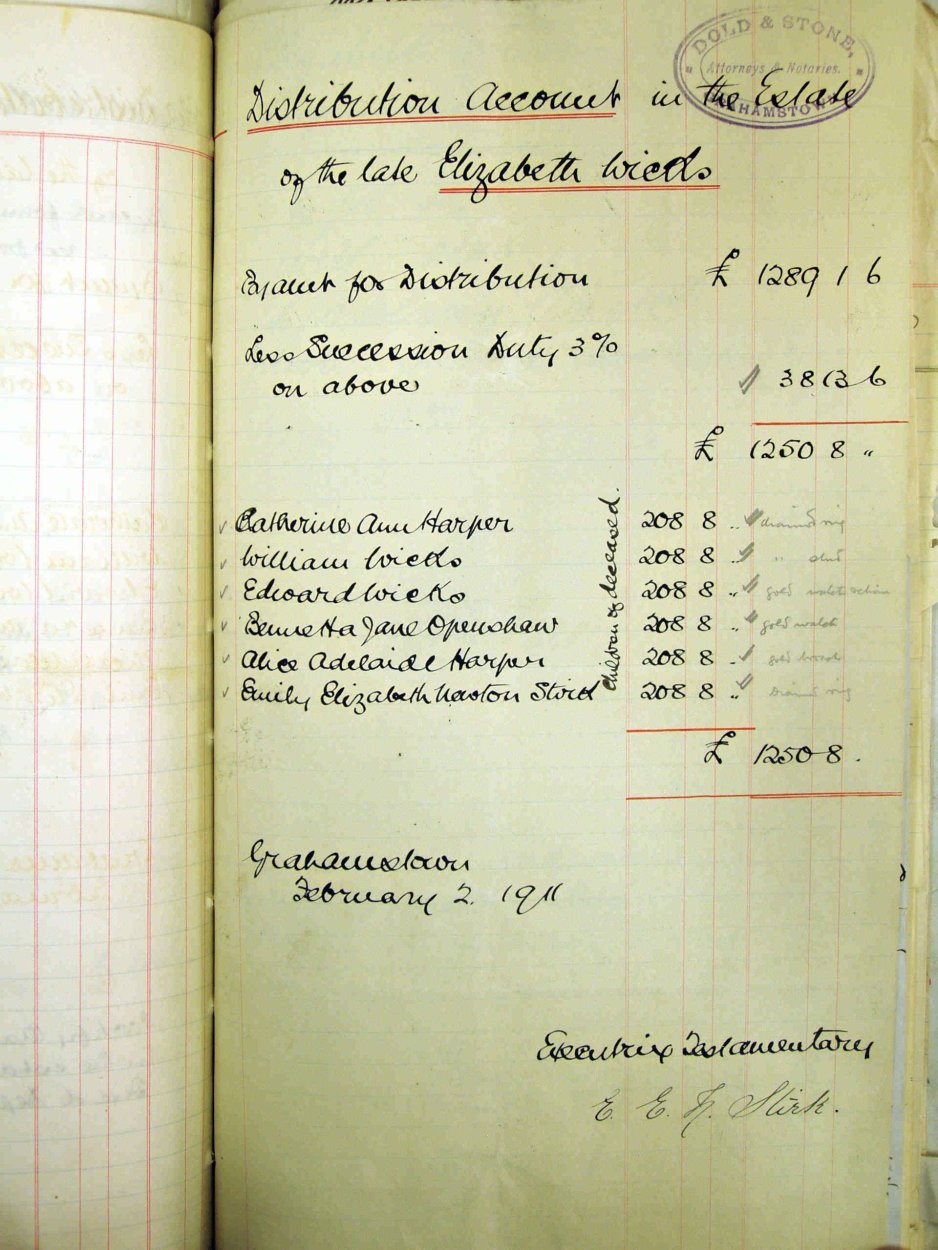 DOLD & STONE,
Attorneys & Notaries.
GRAHAMSTOWN
Distribution Account in the Estate
of the late Elizabeth Wicks
By amt for Distribution £ 1289 1 6
Less Succession Duty 3%
on above 38 13 6
£ 1250 8 "
Children of deceased.
Catherine Ann Harper 208 8 ..
William Wicks 208 8 ..
Edward Wicks 208 8 .. gold
Bennetta Jane Openshaw 208 8 .. gold watch
Alice Adelaide Harper 208 8 .. gold
Emily Elizabeth Newton Stirk 208 8 ..
£ 1250 8 .
Grahamstown
February 2. 1911
Executrix Testamentary
E. E. N. Stirk.